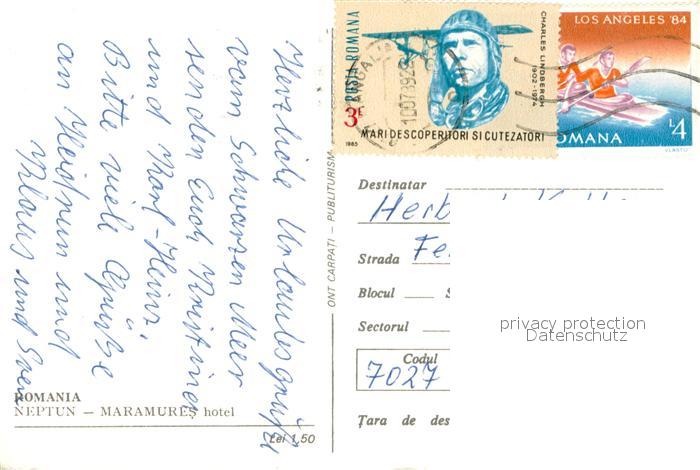 Herzliche Urlaubsgrüße
vom Schwarzen Meer
senden Euch
und Karl-Heinz.
Bitte viele Grüße
an Heidrun und
Klaus und Sven
ROMANIA
NEPTUN — MARAMUREȘ hotel
Lei 1,50
ONT CARPAȚI — PUBLITURISM
POSTA ROMANA
CHARLES LINDBERGH
1902 - 1974
3L
MARI DESCOPERITORI SI CUTEZATORI
1985
LOS ANGELES '84
L4
OMANA
VLASTO
Destinatar
Herb
Strada Fe
Blocul
Sectorul
Codul
7027
Țara de des
privacy protection
Datenschutz